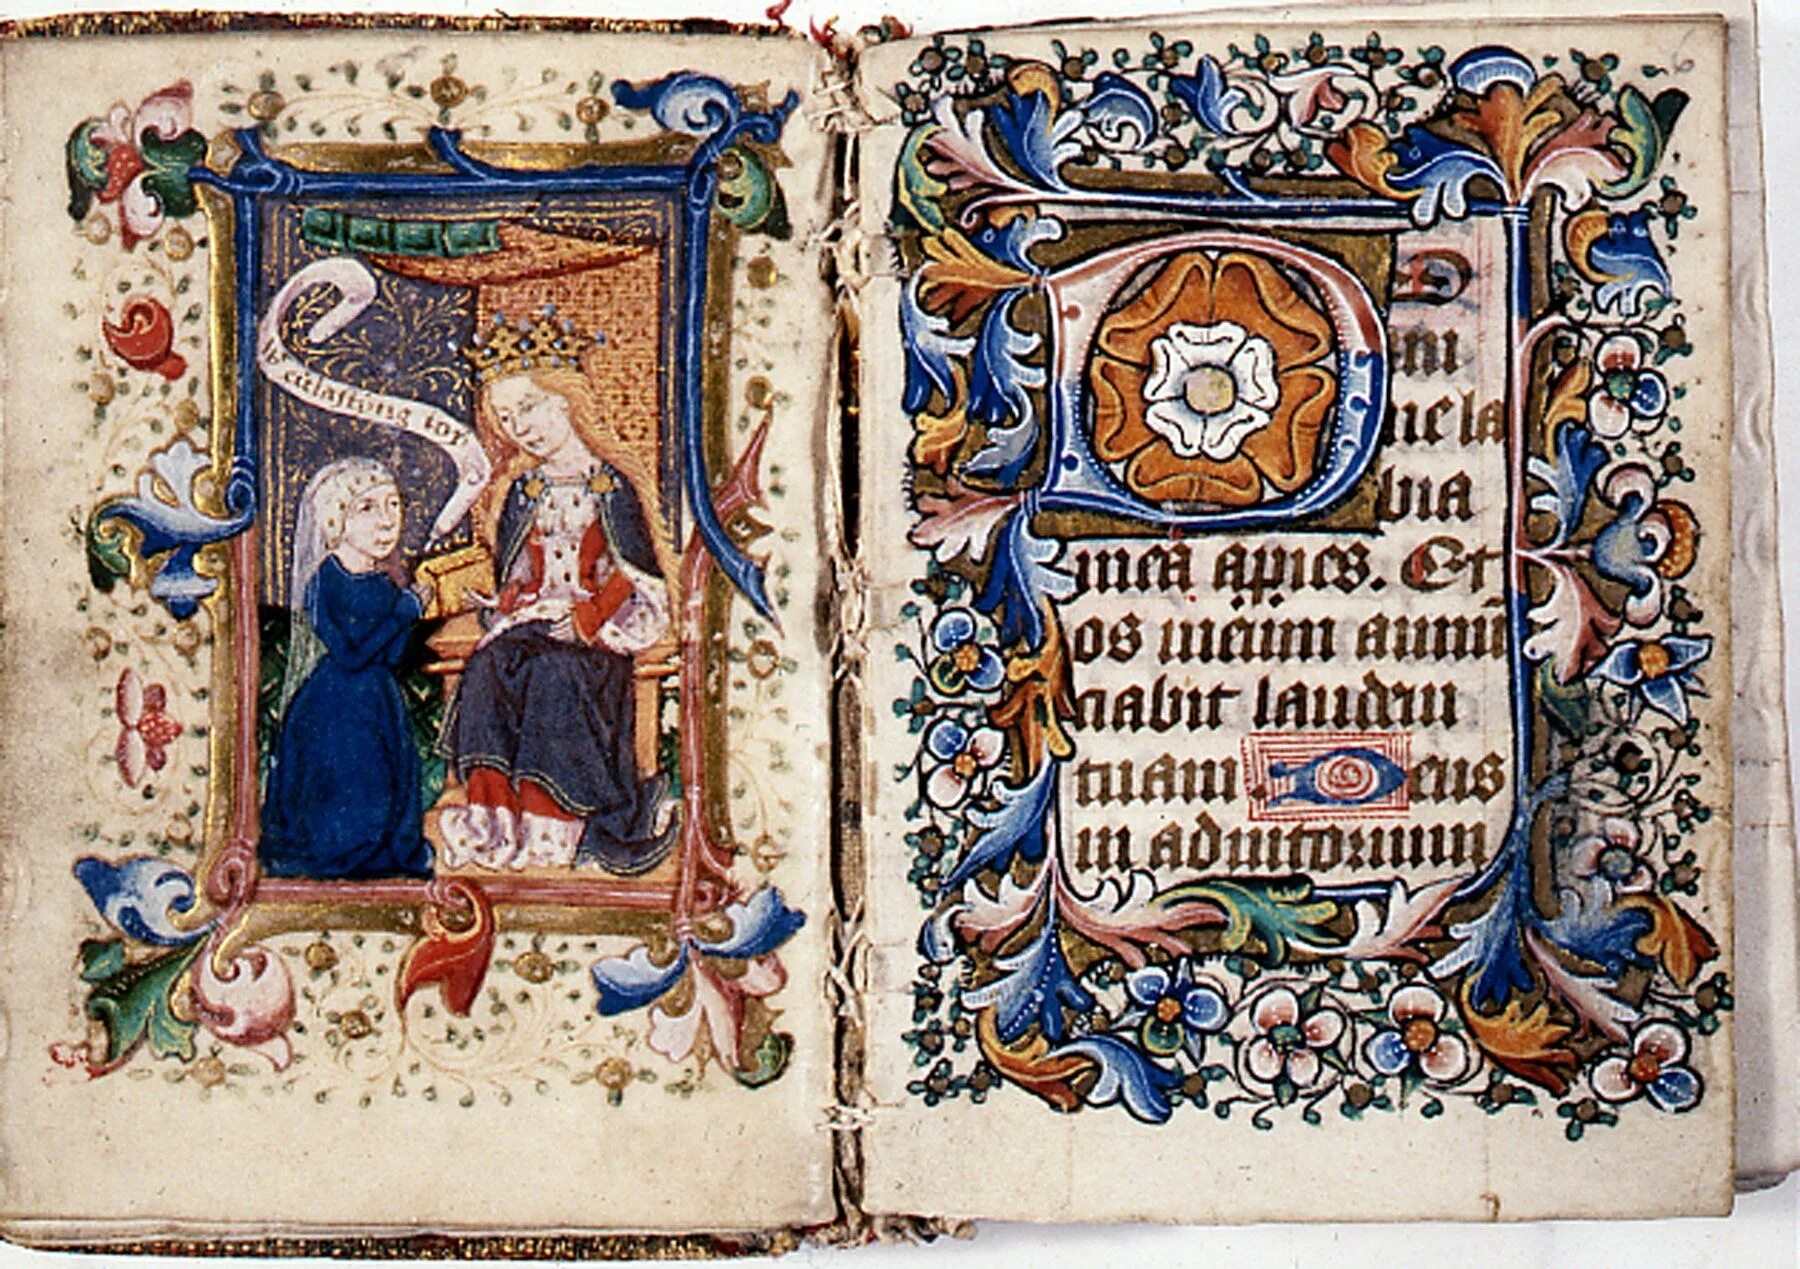 eu'lastyng ioy
6
DO
mi
ne la
bia
mea apies. Et
os meum annū
ciabit laudem
tuam Deus
in adiutorium